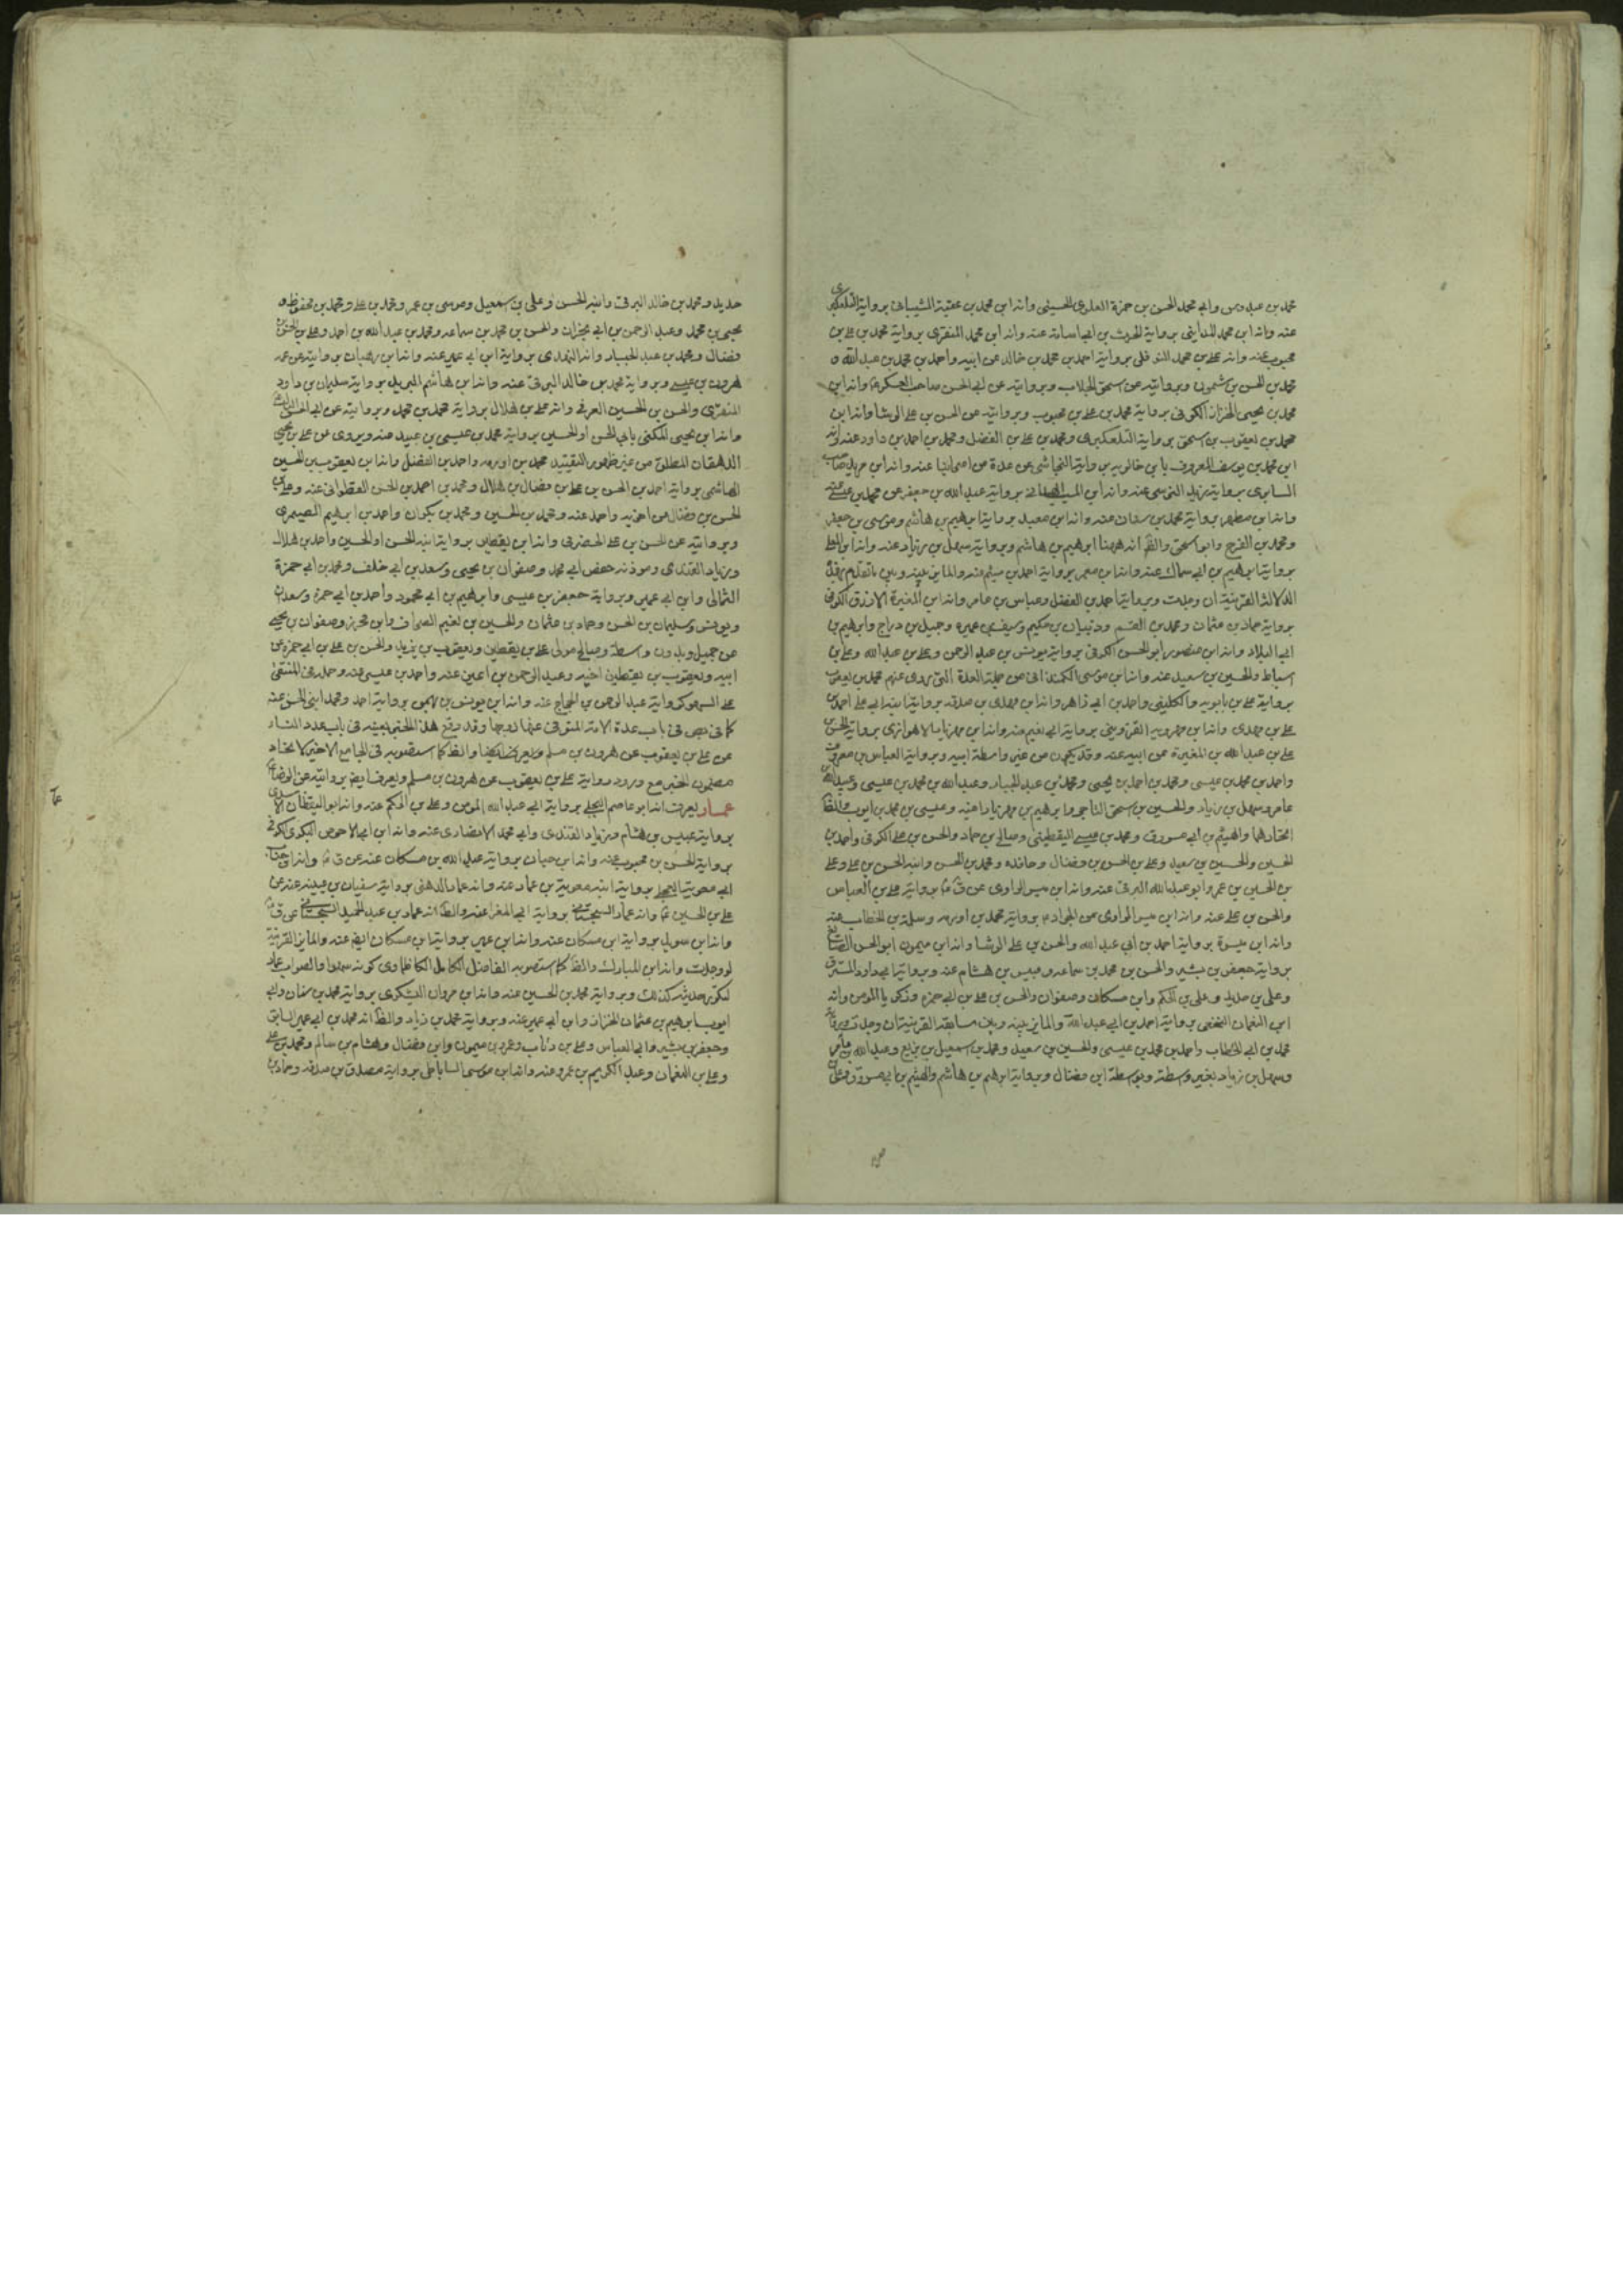 محمد بن عبدوس وابي محمد الحسن بن حمزة العلوى الحسينى وأنه ابن محمد بن عقبة الشيبانى برواية التلعكبرى
عنه وانه ابن محمد المداينى برواية الحرث بن ابى اسامة عنه وانه ابن محمد المنقرى برواية محمد بن على بن
محبوب عنه وانه على بن محمد النوفلى برواية احمد بن محمد بن خالد عن ابيه واحمد بن محمد بن عبد الله و
محمد بن الحسن بن شمون وبروايته عن اسحق الجلاب وبروايته عن ابى الحسن صاحب العسكر وانه ابن
محمد بن يحيى الخزاز الكوفى برواية محمد بن على بن محبوب وبروايته عن الحسن بن على الوشا وانه ابن
محمد بن يعقوب بن اسحق برواية التلعكبرى ومحمد بن على بن الفضل ومحمد بن احمد بن داود عنه وانه
ابن محمد بن يوسف المعروف بابن خالويه برواية النجاشى عن عدة من اصحابنا عنه وانه ابن مزيد صاحب
السابرى برواية زيد النرسى عنه وانه ابن المسيب برواية عبد الله بن جعفر عن محمد بن عيسى عنه
وانه ابن مطهر برواية محمد بن سنان عنه وانه ابن معبد برواية ابرهيم بن هاشم وموسى بن جعفر
ومحمد بن الفرج وابو اسحق والظ انه ههنا ابرهيم بن هاشم وبرواية سهل بن زياد عنه وانه ابن
برواية ابرهيم بن ابى سماك عنه وانه ابن معمر برواية احمد بن ميثم عنه والمايز بينه وبين ما تقدم
القرينة ان وجدت وبرواية احمد بن الفضل وعباس بن عامر وانه ابن المغيرة الازرق الكوفى
برواية حماد بن عثمان ومحمد بن القسم ودنبيان بن حكيم وسيف بن عميره وجميل بن دراج وابرهيم بن
ابى البلاد وانه ابن منصور ابو الحسن الكوفى برواية يونس بن عبد الرحمن وعلى بن عبد الله وعلى بن
اسباط والحسين بن سعيد عنه وانه ابن موسى الكمندانى من جملة العدة التى يروى عنهم محمد بن يعقوب
برواية على بن بابويه والكلينى واحمد بن ابى زاهر وانه ابن مهدى بن صدقه برواية ابنه ابى على احمد بن
على بن مهدى وانه ابن مهرويه القزوينى برواية ابى نعيم عنه وانه ابن مهزيار الاهوازى برواية الحسن بن
على بن عبد الله بن المغيرة عن ابيه عنه وقد يكون من غير واسطة ابيه وبرواية العباس بن معروف
واحمد بن محمد بن عيسى ومحمد بن احمد بن يحيى ومحمد بن عبد الجبار وعبد الله بن محمد بن عيسى وعبد الله بن
عامر وسهل بن زياد والحسين بن اسحق التاجر وابرهيم بن مهزيار اخيه وعيسى بن محمد بن ايوب والظ
اتحادهما والهيثم بن ابى مسروق ومحمد بن عيسى اليقطينى وصالح بن حماد والحسن بن على الكوفى واحمد بن
الحسين والحسين بن سعيد وعلى بن الحسن بن فضال وحافده ومحمد بن الحسن وابنه الحسن بن على وعلى
بن الحسين بن عمرو ابو عبد الله البرقى عنه وانه ابن ميسر الراوى عن ق برواية على بن العباس
والحسن بن على عنه وانه ابن ميسر الراوى عن الجواد برواية محمد بن اورمه وسلمة بن الخطاب عنه
وانه ابن ميسرة برواية احمد بن ابى عبد الله والحسن بن على الوشا وانه ابن ميمون ابو الحسن الصايغ
برواية جعفر بن بشير والحسن بن محمد بن سماعه وعبيس بن هشام عنه وبرواية ابى داود المسترق
وعلى بن حديد وعلى بن الحكم وابن مسكان وصفوان والحسن بن على بن ابى حمزه وذكريا المومن وانه
ابن النعمان النخعى برواية احمد بن ابى عبد الله والمايز بينه وبين سابقه القرينة ان وجدت وبرواية
محمد بن ابى الخطاب واحمد بن محمد بن عيسى والحسين بن سعيد ومحمد بن اسمعيل بن بزيع وعبد الله بن عامر
وسهل بن زياد بغير واسطة وبواسطة ابن فضال وبرواية ابرهيم بن هاشم والهيثم بن ابى مسروق وعلى بن
حديد ومحمد بن خالد البرقى وابنه الحسن وعلى بن اسمعيل وموسى بن عمر ومحمد بن على ومحمد بن محفوظ و
يحيى بن محمد وعبد الرحمن بن ابى نجران والحسن بن محمد بن سماعه ومحمد بن عبد الله بن احمد وعلى بن الحسن بن
فضال ومحمد بن عبد الجبار وانه النهدى برواية ابن ابى عمير عنه وانه ابن وهبان بروايته عن عمه
هرون بن عيسى وبرواية محمد بن خالد البرقى عنه وانه ابن هاشم البريد برواية سليمان بن داود
المنقرى والحسن بن الحسين العرنى وانه على بن هلال برواية محمد بن محمد وبروايته عن ابى الحسن الثالث
وانه ابن يحيى المكنى بابى الحسن او الحسين برواية محمد بن عيسى بن عبيد عنه ويروى عن على بن يحيى
الدهقان المطلق من غير ظهور التقييد محمد بن اورمه واحمد بن الفضل وانه ابن يعقوب بن الحسين
الهاشمى برواية احمد بن الحسن بن على بن فضال بن هلال ومحمد بن احمد بن الحسن القطوانى عنه وعلى بن
الحسن بن فضال عن اخويه واحمد عنه ومحمد بن الحسين ومحمد بن بكران واحمد بن ابرهيم الصيمرى
وبروايته عن الحسن بن على الحضرمى وانه ابن يقطين برواية ابنه الحسن او الحسين واحمد بن هلال
وزياد القندى وموذنه حفص ابى محمد وصفوان بن يحيى وسعد بن ابى خلف ومحمد بن ابى حمزة
الثمالى وابن ابى عمير وبرواية جعفر بن عيسى وابرهيم بن ابى محمود واحمد بن ابى حمزه وسعدان
ويونس وسليمان بن الحسن وحماد بن عثمان والحسين بن نعيم الصحاف وابن محرز وصفوان بن يحيى
عن جميل وبدون واسطة وصالح مولى على بن يقطين ويعقوب بن يزيد والحسن بن على بن ابى حمزه عن
ابيه ويعقوب بن يقطين اخيه وعبد الرحمن بن اعين عنه واحمد بن عيسى عنه وحمله فى المنتقى
على السهو كرواية عبد الرحمن بن الحجاج عنه وانه ابن يونس بن بهمن برواية احمد ومحمد ابنى الحسن عنه
كما فى بص فى باب عدة الامة المتوفى عنها زوجها وقد وقع هذا الخبر بعينه فى باب عدد النساء
عن على بن يعقوب عن هرون بن مسلم ويعرف ايضا والظ كما استصوبه فى الجامع الاخير لاتحاد
مضمون الخبر مع ورود رواية على بن يعقوب عن هرون بن مسلم ويعرف ايض بروايته عن الرضا
عمار يعرف انه ابو عاصم البجلى برواية ابى عبد الله المومن وعلى بن الحكم عنه وانه ابو اليقظان الاسدى
برواية عبيس بن هشام وزياد القندى وابى محمد الانصارى عنه وانه ابن ابى الاحوص البكرى الكوفى
برواية الحسن بن محبوب عنه وانه ابن حيان برواية عبد الله بن مسكان عنه عن ق وانه ابن خباب
ابى معوية البجلى برواية ابنه معوية بن عمار عنه وانه عمار الدهنى برواية سفيان بن عيينه عنه عن
على بن الحسين وانه عمار السجستانى برواية ابى المغرا عنه والظ انه عمار بن عبد الحميد السجستانى عن ق
وانه ابن سويد برواية ابن مسكان عنه وانه ابن عمير برواية ابن مسكان ايض عنه والمايز القرينة
لو وجدت وانه ابن المبارك والظ كما استصوبه الفاضل الكامل الكاظماوى كونه سهوا والصواب عباد
لتكرر حديثه كذلك وبرواية محمد بن الحسين عنه وانه ابن مروان اليشكرى برواية محمد بن سنان وابى
ايوب ابرهيم بن عثمان الخزاز وابن ابى عمير عنه وبرواية محمد بن زياد والظ انه محمد بن ابى عمير السابق
وجعفر بن بشير وابى العباس وعلى بن رئاب وعمرو بن ميمون وابن فضال وهشام بن سالم ومحمد بن على
وعلى بن النعمان وعبد الكريم بن عمرو عنه وانه ابن موسى الساباطى برواية مصدق بن صدقه وحماد بن